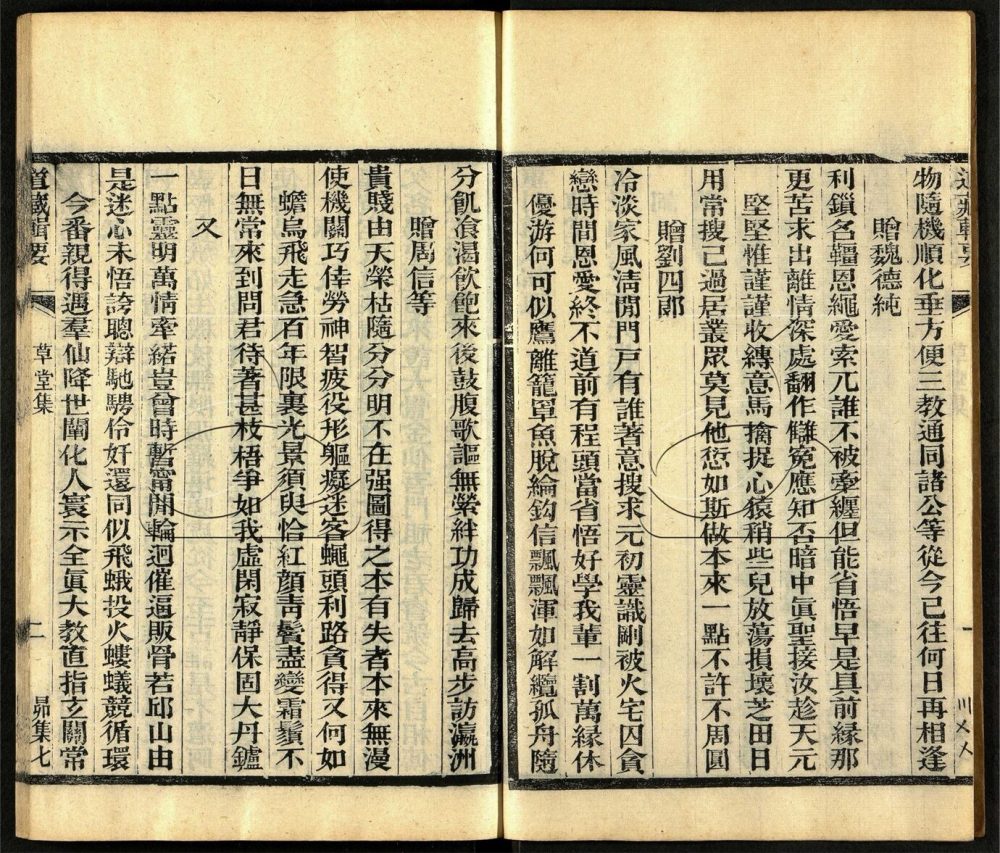 物隨機順化垂方便三教通同諸公等從今已往何日再相逢
贈魏德純
利鎖名韁恩繩愛索兀誰不被牽纏但能省悟早是具前緣那
更苦求出離情深處翻作讎冤應知否暗中眞聖接汝趁天元
堅堅惟謹謹收縛意馬擒捉心猿稍些兒放蕩損壞芝田日
用常搜己過居叢眾莫見他愆如斯做本來一點不許不周圓
贈劉四郞
冷淡家風淸閒門戸有誰著意搜求元初靈識剛被火宅囚貪
戀時間恩愛終不道前有程頭當省悟好學我輩一割萬緣休
優游何可似鷹離籠罩魚脫綸鈎信飄飄渾如解纜孤舟隨
分飢湌渴飲飽來後鼓腹歌謳無縈絆功成歸去高步訪瀛洲
贈周信等
貴賤由天榮枯隨分分明不在强圖得之本有失者本來無漫
使機關巧倖勞神智疲役形軀癡迷客蠅頭利路貪得又何如
蟾烏飛走急百年限裏光景須臾恰紅顔靑鬢盡變霜鬚不
日無常來到問君待著甚枝梧爭如我虛閑寂靜保固大丹鑪
又
一點靈明萬情牽惹豈曾時暫甯閒輪迴催逼販骨若邱山由
是迷心未悟誇聰辯馳騁伶奸還同似飛蛾投火螻蟻競循環
今番親得遇羣仙降世闡化人寰示全眞大教直指玄關常
道藏輯要
草堂集
二
昴集七